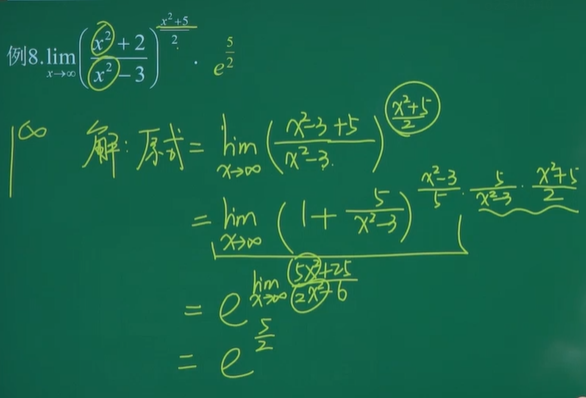 例8. lim x→∞ ( (x²+2)/(x²-3) )^((x²+5)/2) . e^(5/2)
1^∞ 解: 原式 = lim x→∞ ( (x²-3+5)/(x²-3) )^((x²+5)/2)
= lim x→∞ ( 1 + 5/(x²-3) )^((x²-3)/5 · 5/(x²-3) · (x²+5)/2)
= e^(lim x→∞ (5x²+25)/(2x²-6))
= e^(5/2)